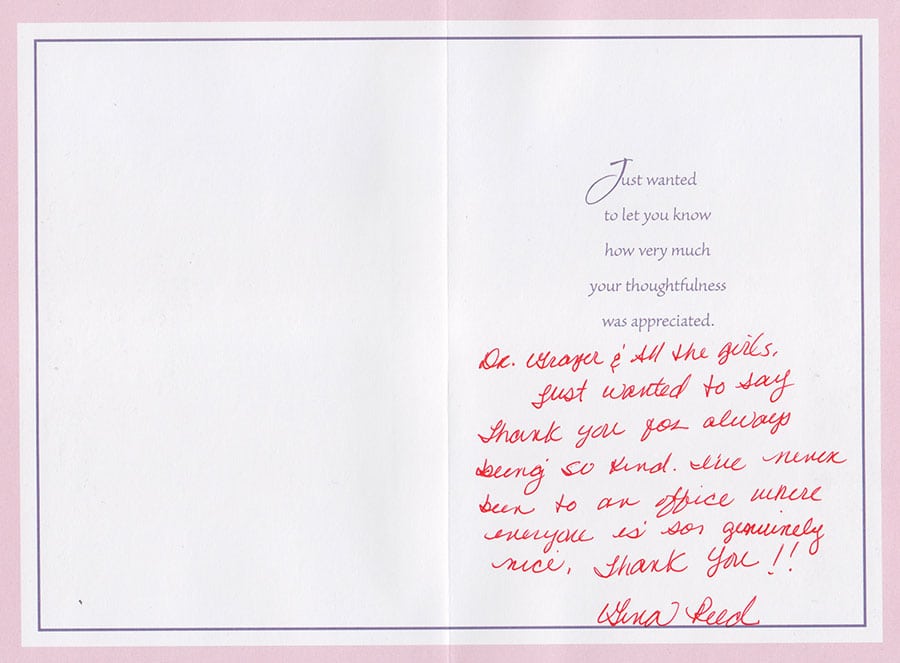 Just wanted
to let you know
how very much
your thoughtfulness
was appreciated.
Dr. Grazer & All the girls,
Just wanted to say
Thank you for always
being so kind. I've never
been to an office where
everyone is so genuinely
nice. Thank You!!
Gina Reed